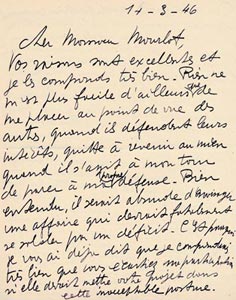 17-3-46
Cher Monsieur Mourlot,
Vos raisons sont excellentes et
je les comprends très bien. Rien ne
m'est plus facile d'ailleurs que de
me placer au point de vue des
autres, quand ils défendent leurs
intérêts, quitte à revenir au mien
quand il s'agit à mon tour
de parer à ma défense. Bien
entendu, il serait absurde d'envisager
une affaire qui devrait fatalement
se solder par un déficit. C'est pourquoi
je vous ai déjà dit que je comprendrais
très bien que vous
si elle devait mettre votre projet dans
cette inacceptable posture.